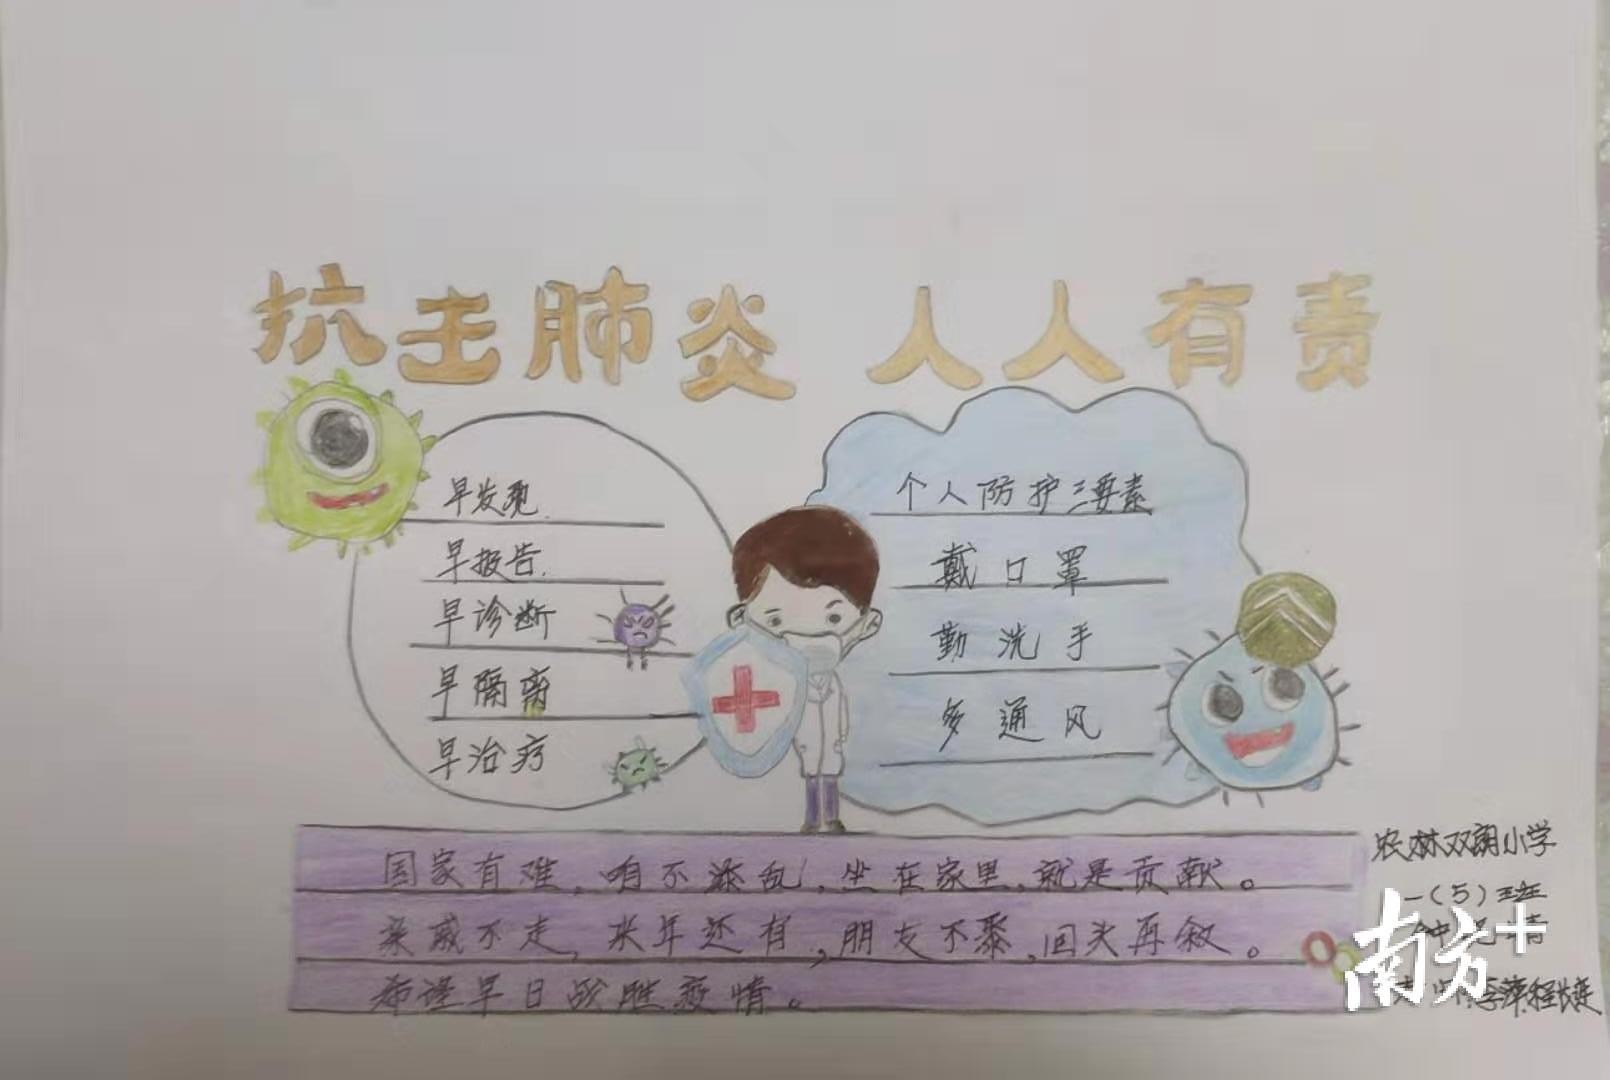 抗击肺炎 人人有责
早发现.
早报告.
早诊断
早隔离
早治疗
个人防护三要素
戴口罩
勤洗手
多通风
国家有难,咱不添乱,坐在家里,就是贡献。
亲戚不走,来年还有,朋友不聚,回头再叙。
希望早日战胜疫情。
农林双朗小学
一(5)班
南方+